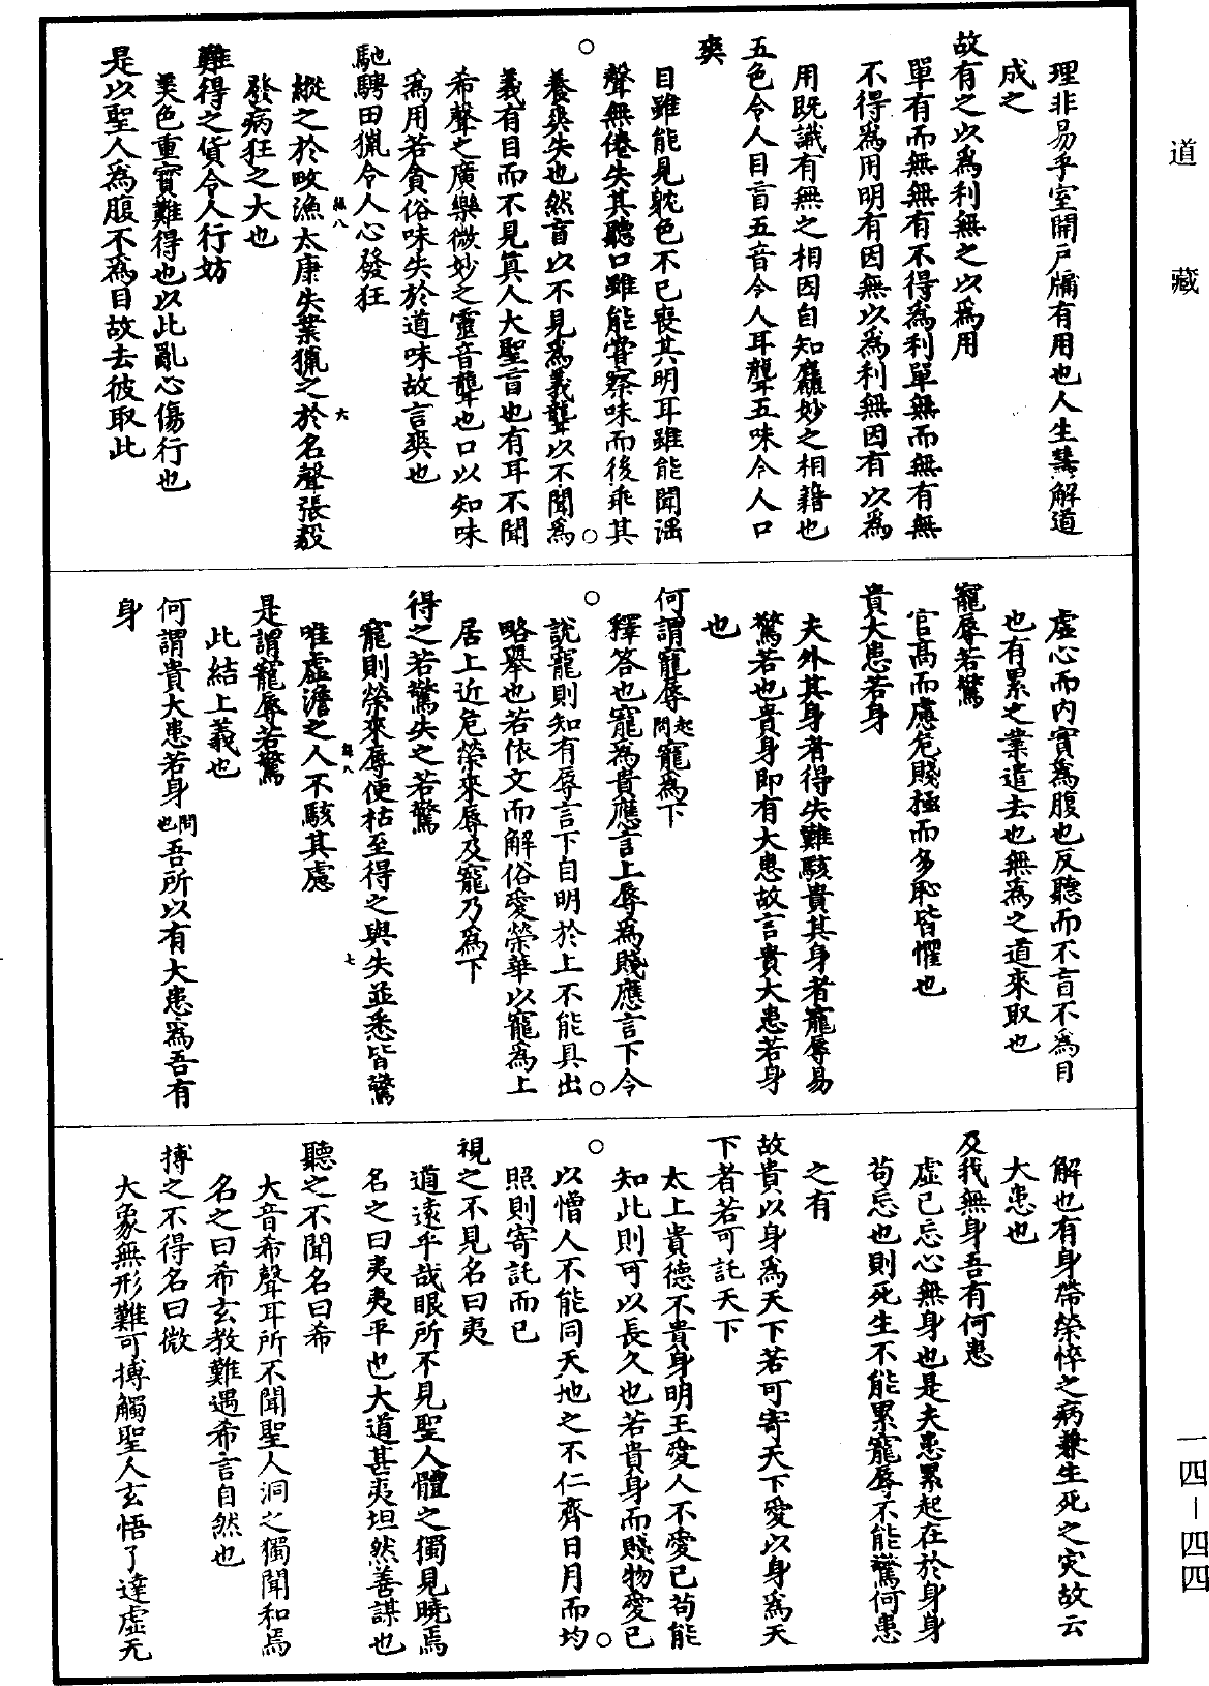 道藏
理非易乎室開戶牖有用也人生慧解道
成之
故有之以爲利無之以爲用
單有而無無有不得爲利單無而無有無
不得爲用明有因無以爲利無因有以爲
用既識有無之相因自知麤妙之相藉也
五色令人目盲五音令人耳聾五味令人口
爽
目雖能見躭色不已喪其明耳雖能聞滛
聲無倦失其聽口雖能甞察味而後乖其
養爽失也然盲以不見爲義聾以不聞爲
義有目而不見真人大聖盲也有耳不聞
希聲之廣樂微妙之靈音聾也口以知味
爲用若貪俗味失於道味故言爽也
馳騁田獵令人心發狂
縱之於畋漁太康失業獵之於名聲張毅
發病狂之大也
難得之貨令人行妨
美色重寶難得也以此亂心傷行也
是以聖人爲腹不爲目故去彼取此
六
虛心而內實爲腹也反聽而不盲不爲目
也有累之業遣去也無爲之道來取也
寵辱若驚
官高而慮危賤極而多恥皆懼也
貴大患若身
夫外其身者得失難駭貴其身者寵辱易
驚若也貴身即有大患故言貴大患若身
也
何謂寵辱起問寵爲下
釋答也寵爲貴應言上辱爲賤應言下今
說寵則知有辱言下自明於上不能具出
略舉也若依文而解俗愛榮華以寵爲上
居上近危榮來辱及寵乃爲下
得之若驚失之若驚
寵則榮來辱便枯至得之與失並悉皆驚
唯虛澹之人不駭其慮
是謂寵辱若驚
此結上義也
何謂貴大患若身問也吾所以有大患爲吾有
身
七
解也有身帶榮悴之病兼生死之灾故云
大患也
及我無身吾有何患
虛已忘心無身也是夫患累起在於身身
苟忘也則死生不能累寵辱不能驚何患
之有
故貴以身爲天下若可寄天下愛以身爲天
下者若可託天下
太上貴德不貴身明王愛人不愛已苟能
知此則可以長久也若貴身而賤物愛已
以憎人不能同天地之不仁齊日月而均
照則寄託而已
視之不見名曰夷
道遠乎哉眼所不見聖人體之獨見曉焉
名之曰夷夷平也大道甚夷坦然善謀也
聽之不聞名曰希
大音希聲耳所不聞聖人洞之獨聞和焉
名之曰希玄教難遇希言自然也
搏之不得名曰微
大象無形難可搏觸聖人玄悟了達虛无
一四－四四